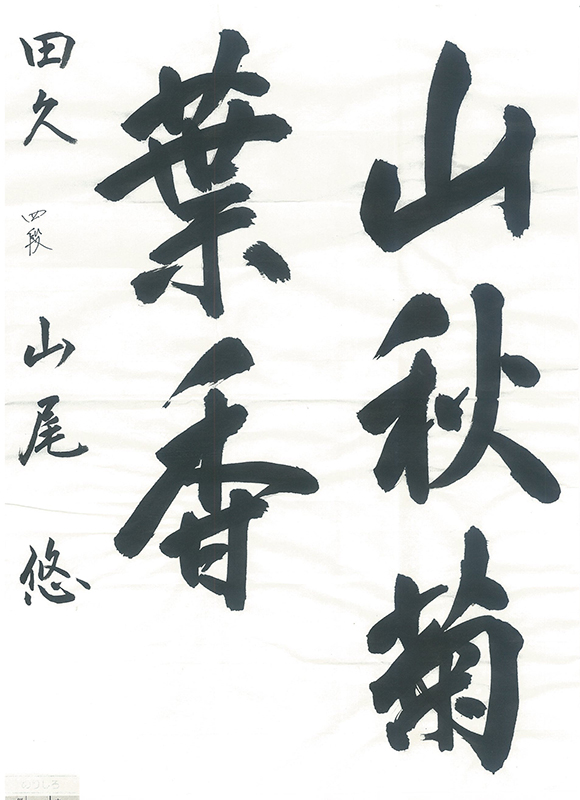 山秋菊
葉香
田久 四段 山尾 悠